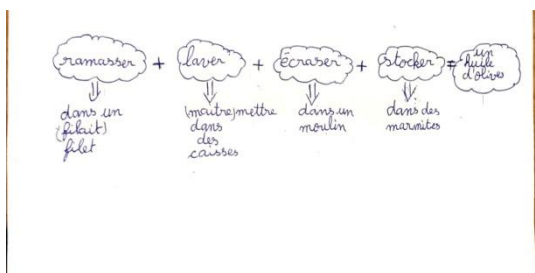 ramasser + laver + écraser + stocker = un
huile
d'olives
dans un
(filait)
filet
(maitre) mettre
dans
des
caisses
dans un
moulin
dans des
marmites